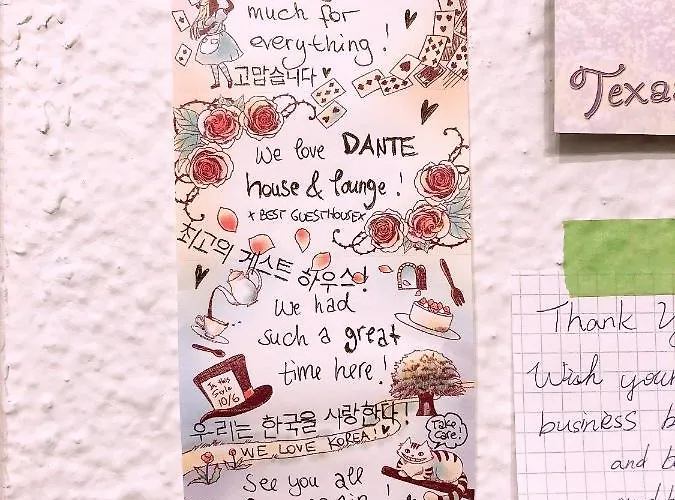 much for
everything!
고맙습니다
We love DANTE
house & lounge!
x BEST GUESTHOUSE x
최고의 게스트 하우스!
We had
such a great
time here!
In this
Style
10/6
우리는 한국을 사랑한다!
WE LOVE KOREA!
Take
care!
See you all
Texas
Thank
Wish your
business
and